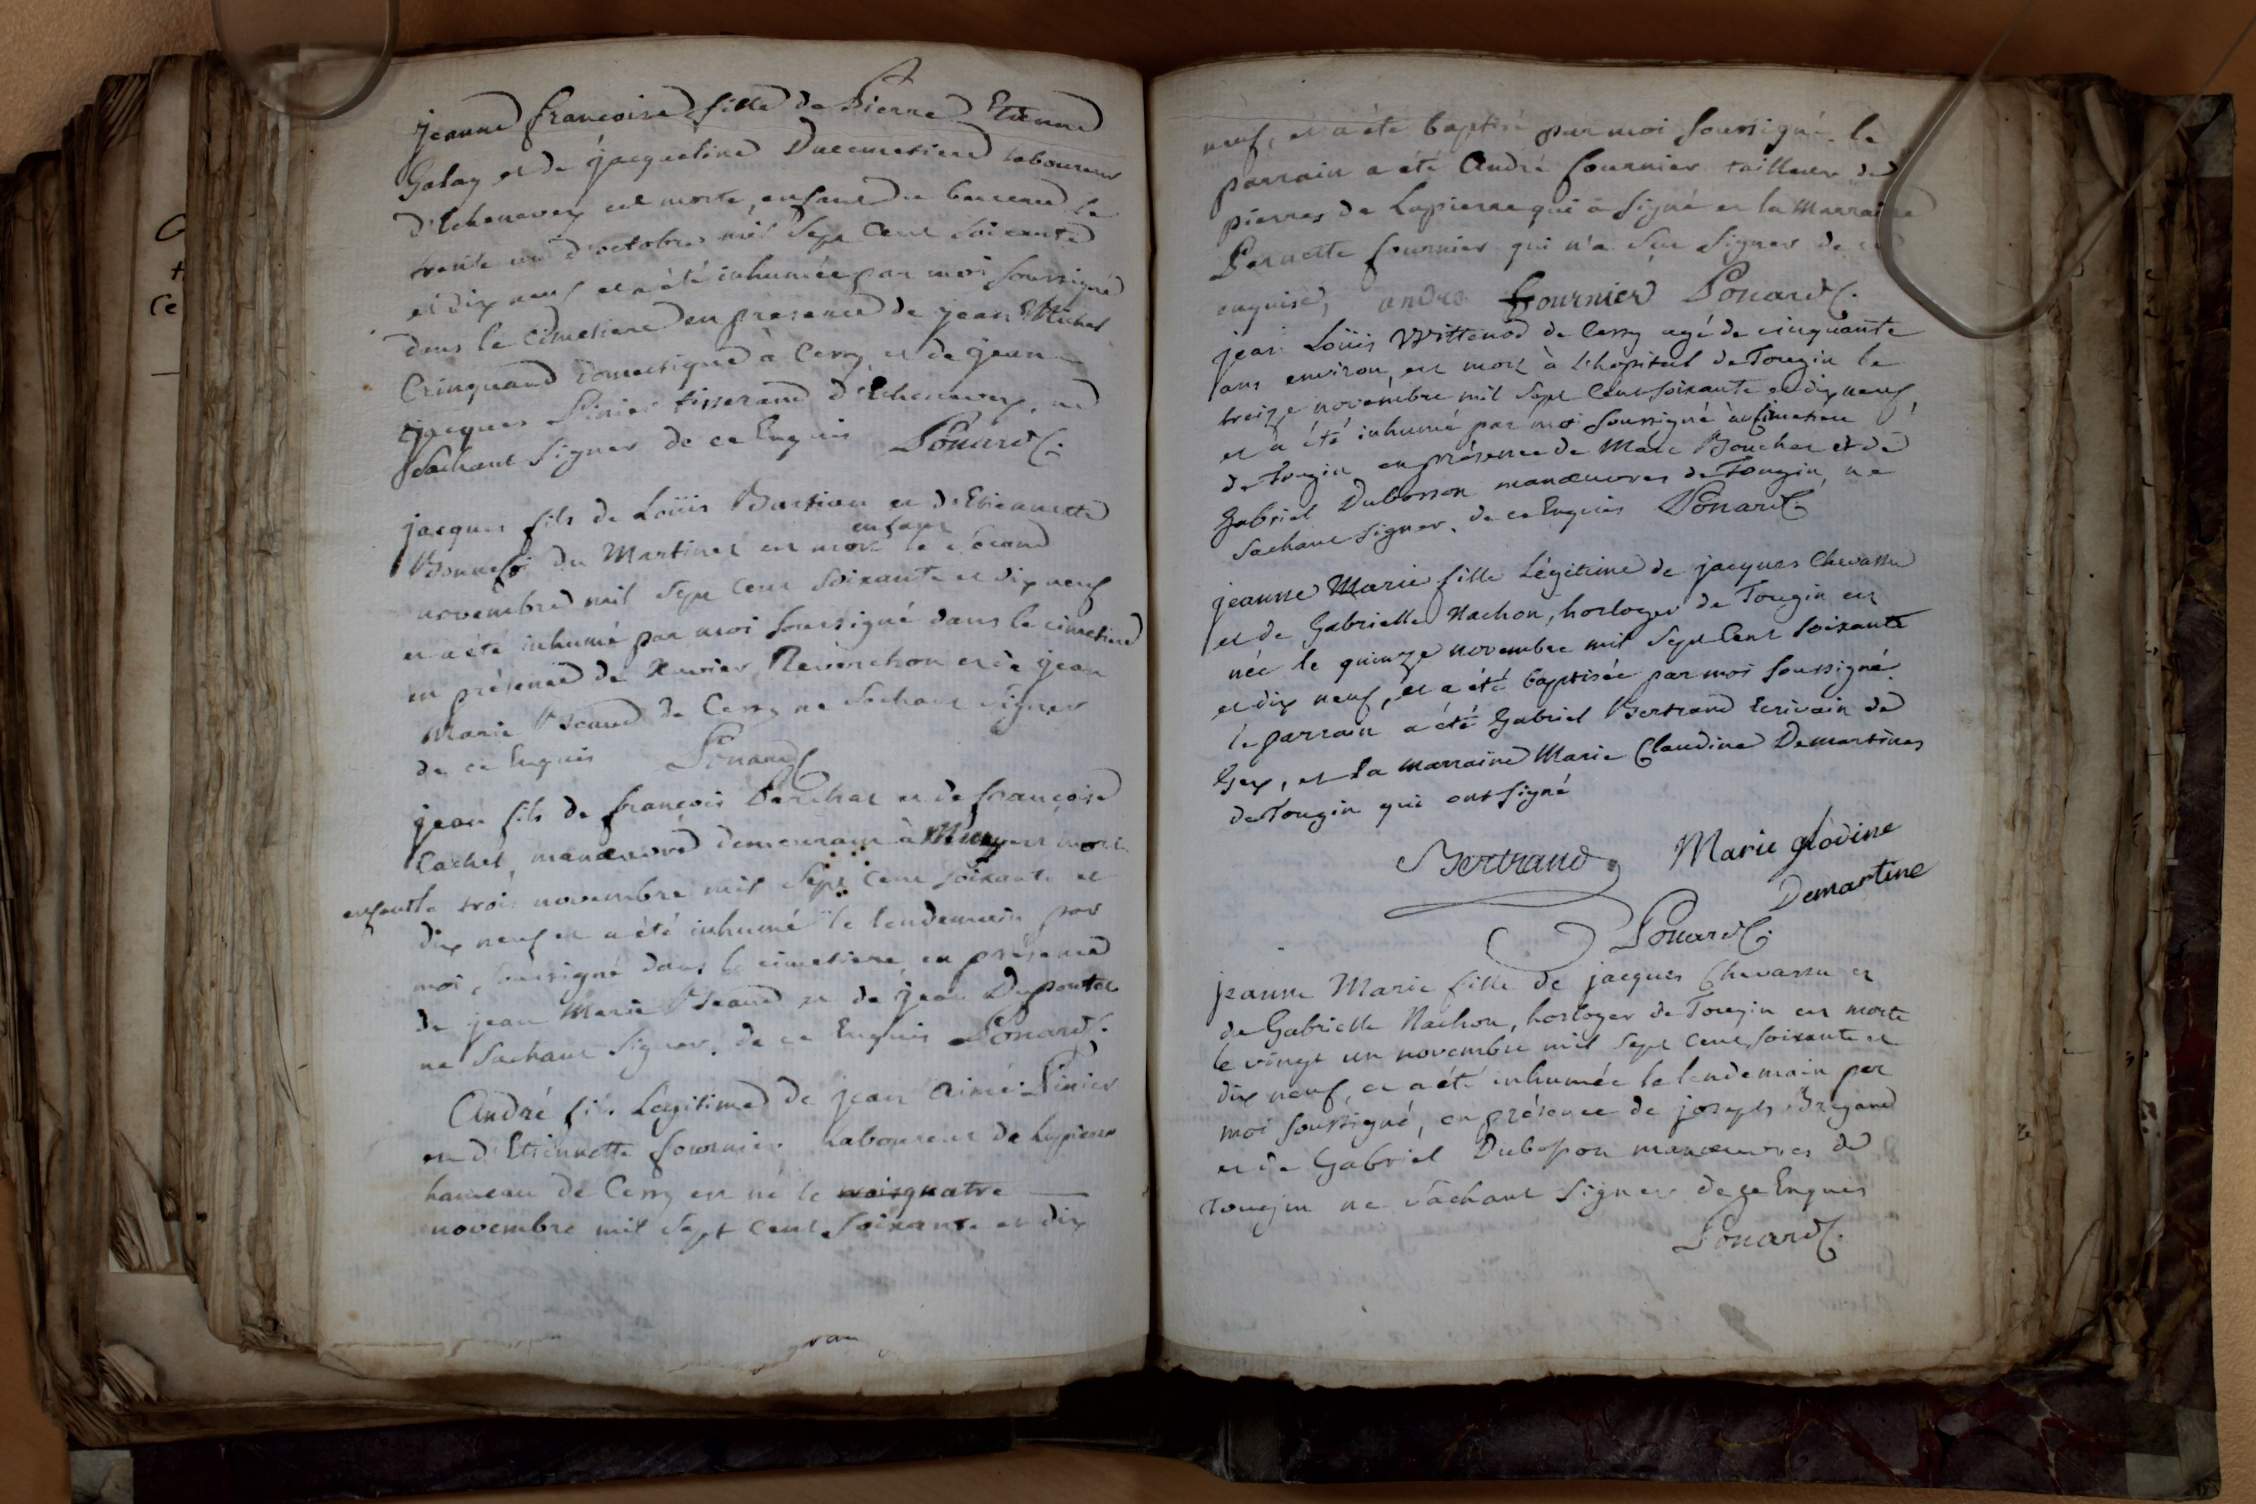 jeanne françoise fille de Pierre Etienne
Golay et de jacqueline Ducimetiere laboureur
d'Echenevex est morte, enfant du berceau le
trente un d'octobre mil sept cent soixante
et dix neuf et a été inhumée par moi soussigné
dans le cimetiere en présence de jean Michel
Crinquand domestique à Cessy et de jean
jacques Pinier tisserand d'Echenevex, ne
sachant signer de ce Enquis Ponard C.
jacques fils de Loüis Bastian et d'Etienette
enfant
du Martinet est mort le second
novembre mil sept cent soixante et dix neuf
et a été inhumé par moi soussigné dans le cimetiere
en présence de Xavier Reverchon et de jean
Marie Béaud de Cessy ne sachant signer
de ce Enquis Ponard C
jean fils de françois Perchat et de françoise
Cachet, manœuvre demeurant à est mort
enfant le trois novembre mil sept cent soixante et
dix neuf et a été inhumé le lendemain par
moi, soussigné dans le cimetiere en présence
de jean Marie Béaud et de jean Dupontet
ne sachant signer, de ce Enquis Ponard C.
André fils Légitime de jean aimé Pinier
et d'Etiennette fournier laboureur de Lapierre
hameau de Cessy est né le trois quatre
novembre mil sept cent soixante et dix
neuf, et a été baptisé par moi soussigné. le
parrain a été André fournier tailleur de
pierres de Lapierre qui a signé et la Marraine
Pernette fournier qui n'a sçu signer de ce
enquise, andre fournier Ponard C.
jean Loüis Wittenod de Cessy agé de cinquante
ans environ, est mort à l'hopital de Tougin le
treize novembre mil sept cent soixante et dix neuf,
et a été inhumé par moi soussigné au cimetiere
de Tougin en présence de Marc Bouchet et de
Gabriel Dubosson manœuvres de Tougin, ne
sachant signer, de ce Enquis Ponard C.
jeanne Marie fille Légitime de jacques Chevassu
et de Gabrielle Nachon, horloger de Tougin est
née le quinze novembre mil sept cent soixante
et dix neuf, et a été baptisée par moi soussigné.
le parrain a été Gabriel Bertrand Ecrivain de
Gex, et la marraine Marie Claudine Demartines
de Tougin qui ont signé
Bertrand Marie glodine
Demartine
Ponard C.
jeanne Marie fille de jacques Chevassu et
de Gabrielle Nachon, horloger de Tougin est morte
le vingt un novembre mil sept cent soixante et
dix neuf, et a été inhumée le lendemain par
moi soussigné, en présence de joseph Brégand
et de Gabriel Dubosson manœuvres de
Tougin ne sachant signer de ce Enquis
Ponard C.